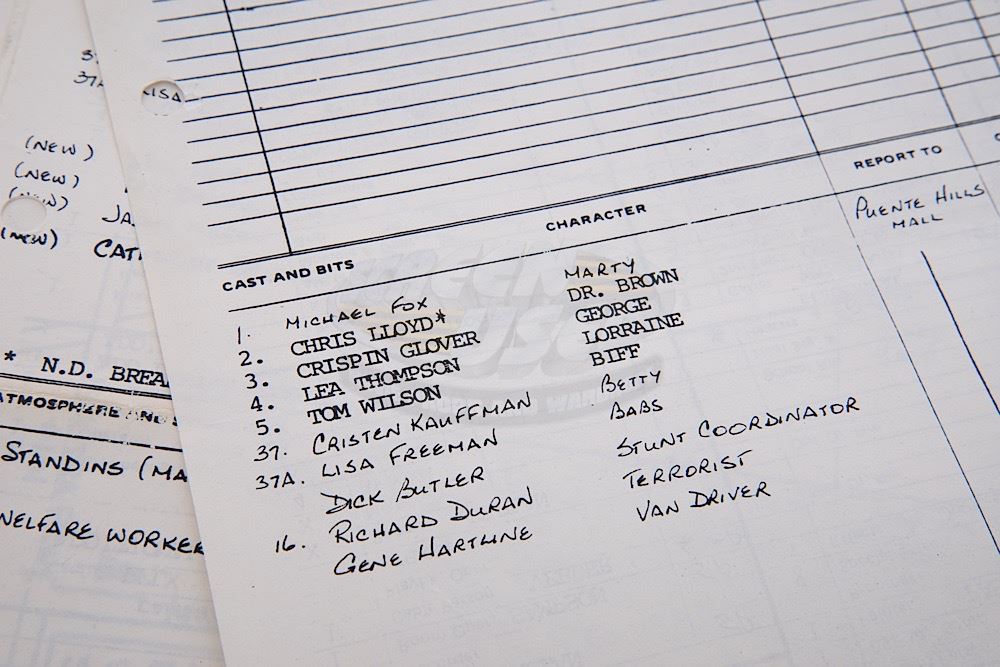 37A
LISA
(NEW)
(NEW)
(NEW) JA
(NEW) CATH
* N.D. BREA
ATMOSPHERE AND S
STANDINS (MA
WELFARE WORKER
CAST AND BITS CHARACTER REPORT TO
1. MICHAEL FOX MARTY PUENTE HILLS MALL
2. CHRIS LLOYD* DR. BROWN
3. CRISPIN GLOVER GEORGE
4. LEA THOMPSON LORRAINE
5. TOM WILSON BIFF
37. CRISTEN KAUFFMAN BETTY
37A. LISA FREEMAN BABS
DICK BUTLER STUNT COORDINATOR
16. RICHARD DURAN TERRORIST
GENE HARTLINE VAN DRIVER